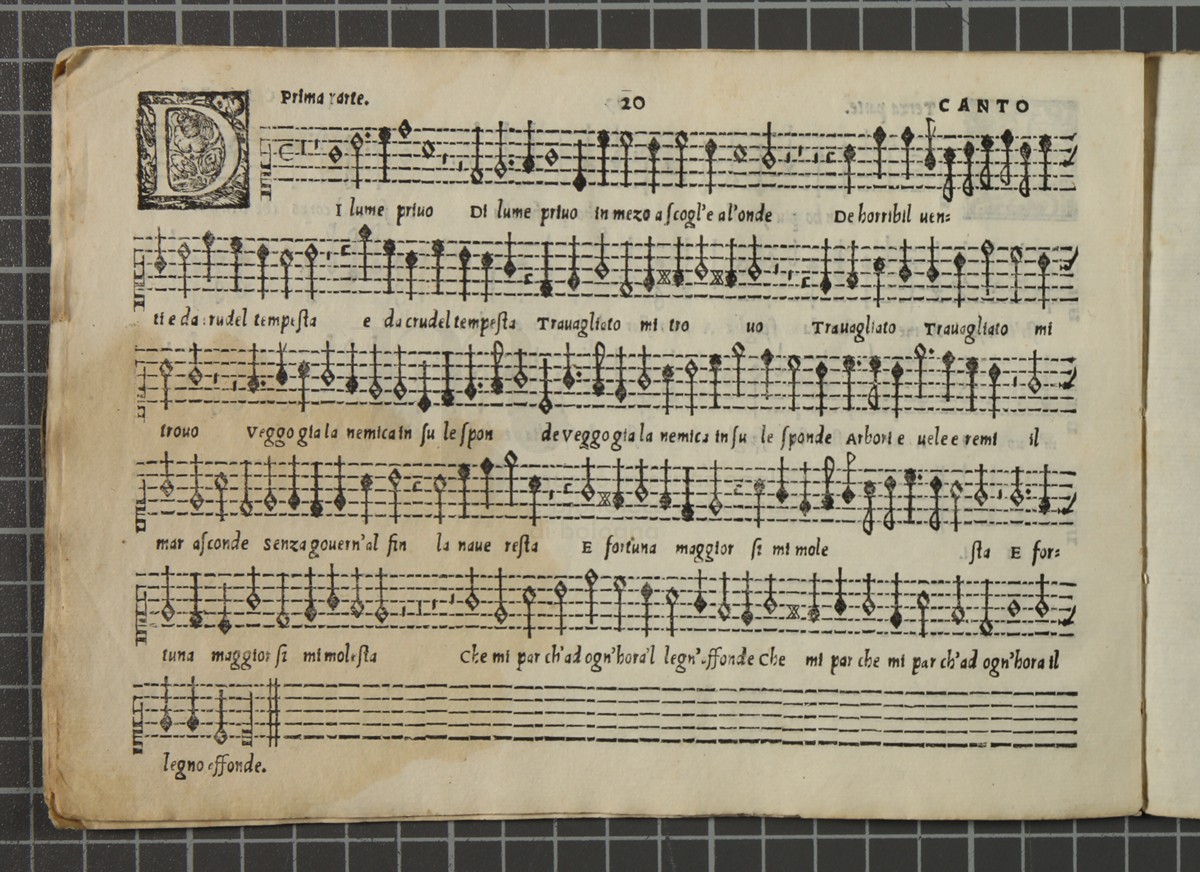 Prima parte. 20 CANTO
DI lume priuo Di lume priuo in mezo a ſcogl'e al'onde De horribil uen=
ti e da crudel tempeſta e da crudel tempeſta Trauagliato mi tro uo Trauagliato Trauagliato mi
trouo Veggo gia la nemica in ſu le ſpon de Veggo gia la nemica in ſu le ſponde Arbori e uele e remi il
mar aſconde Senza gouern'al fin la naue reſta E fortuna maggior ſi mi mole ſta E for=
tuna maggior ſi mi moleſta Che mi par ch'ad ogn'hora'l legn'affonde Che mi par che mi par ch'ad ogn'hora il
legno affonde.